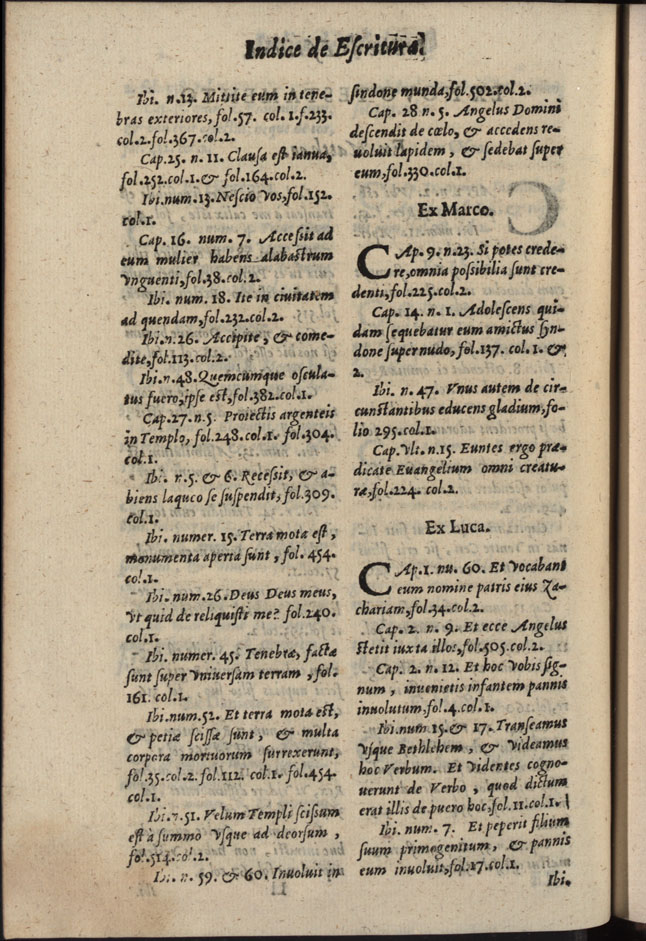 Indice de Escritura.
Ibi. n.13. Mittite eum in tene-
bras exteriores, fol.57. col.1.f.233.
col.2.fol.367.col.2.
Cap.25. n. 11. Clausa est ianua,
fol.252.col.1.& fol.164.col.2.
Ibi.num.13.Nescio vos,fol.152.
col.1.
Cap. 16. num. 7. Accessit ad
eum mulier habens alabastrum
vnguenti,fol.38.col.2.
Ibi. num. 18. Ite in ciuitatem
ad quendam,fol.232.col.2.
Ibi.n.26. Accipite, & come-
dite,fol.113.col.2.
Ibi.n.48.Quemcumque oscula-
tus fuero,ipse est,fol.382.col.1.
Cap.27. n.5. Proiectis argenteis
in Templo, fol.248.col.1. fol.304.
col.1.
Ibi. n.5. & 6. Recessit, & a-
biens laqueo se suspendit, fol.309.
col.1.
Ibi. numer. 15. Terra mota est,
monumenta aperta sunt, fol. 454.
col.1.
Ibi. num.26. Deus Deus meus,
vt quid de reliquisti me? fol.240.
col.1.
Ibi. numer. 45. Tenebræ, factæ
sunt super vniuersam terram, fol.
161. col.1.
Ibi.num.52. Et terra mota est,
& petiæ scissæ sunt, & multa
corpora mortuorum surrexerunt,
fol.35.col.2. fol.112. col.1. fol.454.
col.1.
Ibi.n.51. Velum Templi scissum
est à summo vsque ad deorsum,
fol.514.col.2.
Ibi. n. 59. & 60. Inuoluit in
sindone munda,fol.502.col.2.
Cap. 28 n. 5. Angelus Domini
descendit de cœlo, & accedens re-
uoluit lapidem, & sedebat super
eum,fol.330.col.1.
Ex Marco.
CAp. 9. n.23. Si potes crede-
re,omnia possibilia sunt cre-
denti,fol.225.col.2.
Cap. 14. n. 1. Adolescens qui-
dam sequebatur eum amictus syn-
done super nudo, fol.137. col.1. &
2.
Ibi. n. 47. Vnus autem de cir-
cunstantibus educens gladium,fo-
lio 295.col.1.
Cap.Vlt. n.15. Euntes ergo præ-
dicate Euangelium omni creatu-
ræ,fol.224. col.2.
Ex Luca.
CAp.1. nu. 60. Et vocabant
eum nomine patris eius Za-
chariam,fol.34.col.2.
Cap. 2. n. 9. Et ecce Angelus
stetit iuxta illos,fol.505.col.2.
Cap. 2. n. 12. Et hoc vobis sig-
num, inuenietis infantem pannis
inuolutum,fol.4.col.1.
Ibi.num.15.& 17.Transeamus
vsque Bethlehem, & videamus
hoc Verbum. Et videntes cogno-
uerunt de Verbo, quod dictum
erat illis de puero hoc,fol.11.col.1.
Ibi. num. 7. Et peperit filium
suum primogenitum, & pannis
eum inuoluit,fol.17.col.1.
Ibi.